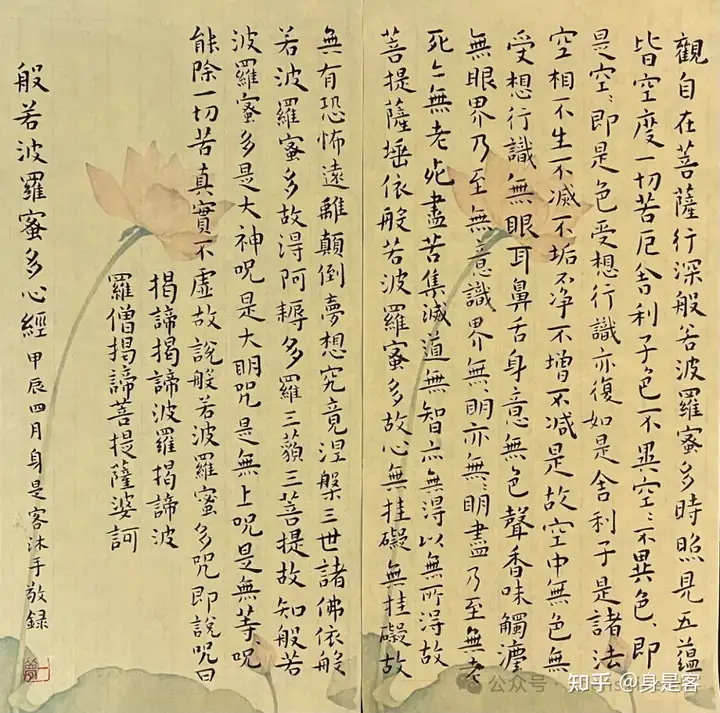 觀自在菩薩行深般若波羅蜜多時照見五蘊
皆空度一切苦厄舍利子色不異空〻不異色〻即
是空〻即是色受想行識亦復如是舍利子是諸法
空相不生不滅不垢不净不增不减是故空中無色無
受想行識無眼耳鼻舌身意無色聲香味觸灋
無眼界乃至無意識界無〻明亦無〻明盡乃至無老
死亦無老死盡苦集滅道無智亦無得以無所得故
菩提薩埵依般若波羅蜜多故心無挂礙無挂礙故
無有恐怖遠離顛倒夢想究竟涅槃三世諸佛依般
若波羅蜜多故得阿耨多羅三藐三菩提故知般若
波羅蜜多是大神呪是大明呪是無上呪是無等〻呪
能除一切苦真實不虛故説般若波羅蜜多呪即説呪曰
揭諦揭諦波羅揭諦波
羅僧揭諦菩提薩婆訶
般若波羅蜜多心經 甲辰四月身是客沐手敬録
公众号
知乎 @身是客